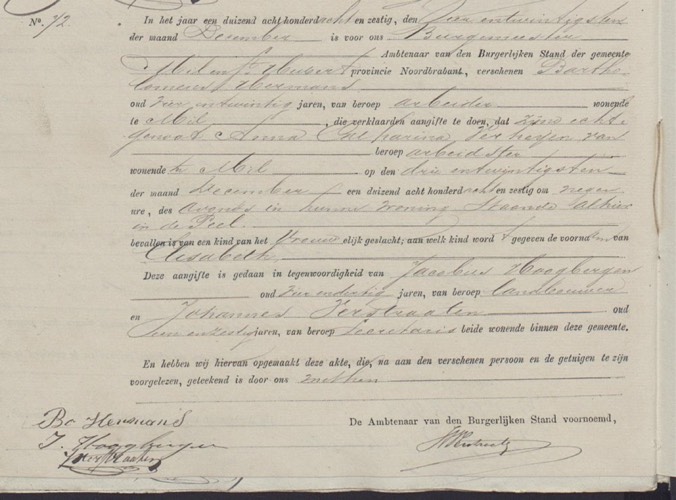 No. 72
In het jaar een duizend acht honderd acht en zestig, den Vier entwintigsten
der maand December is voor ons Burgemeester
Ambtenaar van den Burgerlijken Stand der gemeente
Mil en St. Hubert provincie Noordbrabant, verschenen Bartho-
lomeus Hermans
oud vier entwintig jaren, van beroep arbeider wonende
te Mil, die verklaarden aangifte te doen, dat zijne echt-
genoot Anna Catharina van
beroep arbeidster
wonende te Mil op den drie entwintigsten
der maand December een duizend acht honderd acht en zestig om negen
ure, des avonds in hunne woning staande alhier
in de Peel
bevallen is van een kind van het Vrouwelijk geslacht; aan welk kind word t gegeven de voornaam van
Elisabeth
Deze aangifte is gedaan in tegenwoordigheid van Jacobus Hoogbergen
oud vier endertig jaren, van beroep landbouwer
en Johannes Verstraaten oud
een enzestig jaren, van beroep secretaris beide wonende binnen deze gemeente.
En hebben wij hiervan opgemaakt deze akte, die, na aan den verschenen persoon en de getuigen te zijn
voorgelezen, geteekend is door ons en hen
De Ambtenaar van den Burgerlijken Stand voornoemd,
Br Hermans
J. Hoogbergen